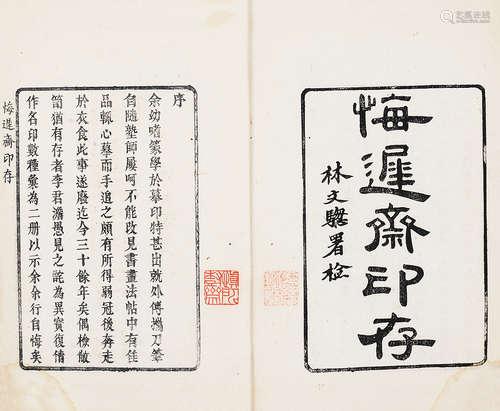 悔遲齋印存
林文聰署檢
序
余幼嗜篆學於摹印特甚出就外傅攜刀筆
自隨塾師屢呵不能改見書畫法帖中有佳
品輒心摹而手追之頗有所得弱冠後奔走
於衣食此事遂廢迄今三十餘年矣偶檢敝
笥猶有存者李君澹愚見之詫為異寶復倩
作名印數種彙為二冊以示余余行自悔矣
悔遲齋印存